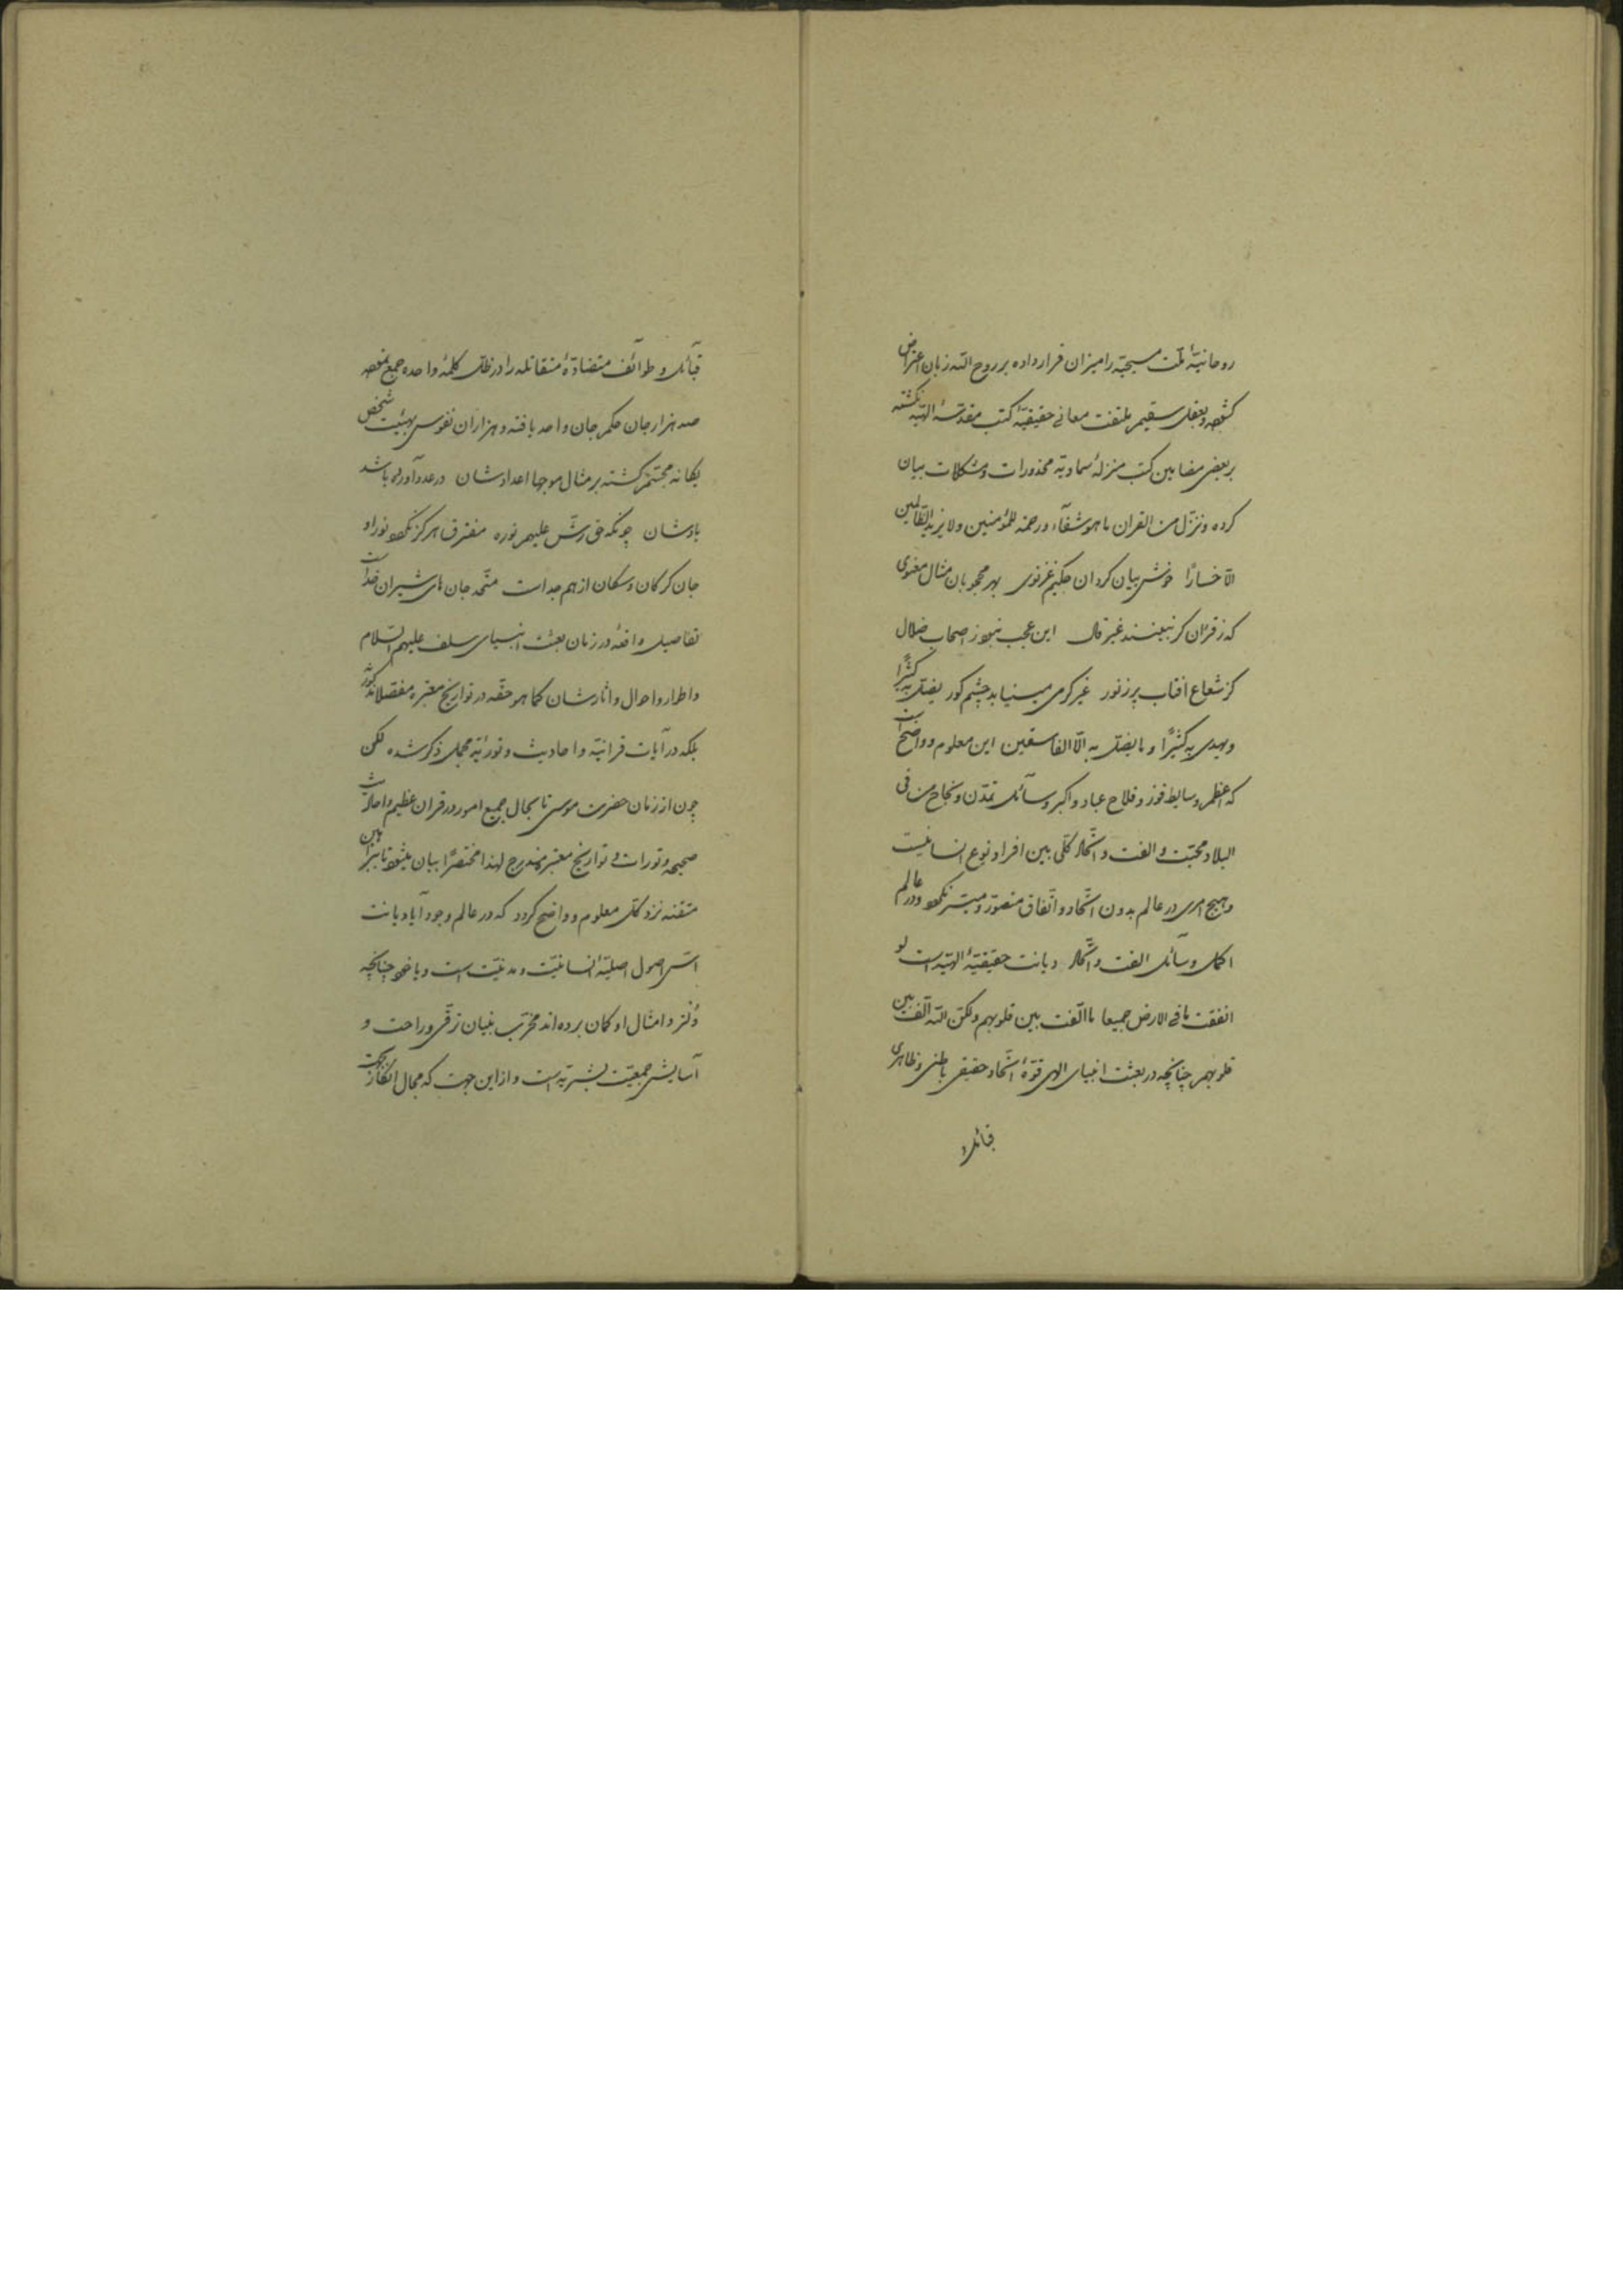 روحانیّهٔ ملّت مسیحیّه را میزان قرار داده بر روح الله زبان اعتراض
گشوده و بعقل سقیم ملتفت معانی حقیقیّهٔ کتب مقدّسهٔ الهیّه نگشته
بر بعض مضامین کتب منزلهٔ سماویّه محذورات و مشکلات بیان
کرده و ننزّل من القران ما هو شفآء و رحمة للمؤمنین و لا یزید الظّالمین
الّا خسارًا خوش بیان کرد ان حکیم غزنوی بهر محجوبان مثال معنوی
که ز قران گر نبینند غیر قال این عجب نبود ز اصحاب ضلال
کز شعاع افتاب پر ز نور غیر گرمی می‌نیابد چشم کور یضلّ به کثیرًا
و یهدی به کثیرًا و ما یضلّ به الّا الفاسقین این معلوم و واضح است
که اعظم وسایط فوز و فلاح عباد و اکبر وسائل تمدّن و نجاح من فی
البلاد محبّت و الفت و اتّحاد کلّی بین افراد نوع انسانیست
و هیچ امری در عالم بدون اتّحاد و اتّفاق متصوّر و میسّر نگردد و در عالم
اکمل وسائل الفت و اتّحاد دیانت حقیقیّهٔ الهیّه است لو
انفقت ما فی الارض جمیعا ما الّفت بین قلوبهم ولکن الله الّف بین
قلوبهم چنانچه در بعثت انبیای الهی قوّهٔ اتّحاد حقیقی باطنی و ظاهری
قبائل و
قبائل و طوائف متضادّهٔ متقاتله را در ظل کلمهٔ واحده جمع نموده
صد هزار جان حکم جان واحد یافته و هزاران نفوس بهیئت شخص
یگانه مجتمع گشته بر مثال موجها اعدادشان در عدد آورده باشد
بادشان چونکه حق رشّ علیهم نوره مفترق هرگز نگردد نور او
جان گرگان و سگان از هم جداست متّحد جان های شیران خداست
تفاصیل واقعهٔ در زمان بعثت انبیای سلف علیهم السّلام
و اطوار و احوال و اثارشان کما هو حقّه در تواریخ معتبره مفصّلا مذکور نه
بلکه در آیات قرانیّه و احادیث و توراتیّه مجمل ذکر شده لکن
چون از زمان حضرت موسی تا بحال جمیع امور در قران عظیم و احادیث
صحیحه و تورات و تواریخ معتبره مندرج لهذا مختصرًا بیان میشود تا ببراهین
متقنه نزد کلّ معلوم و واضح گردد که در عالم وجود آیا دیانت
اسّ اصول اصلیّهٔ انسانیّت و مدنیّت است و یا خود چنانچه
ولتر و امثال او گمان برده‌اند مخرّب بنیان ترقّی و راحت و
آسایش جمعیّت بشریّه است و از این جهت که مجال انکار از جهت